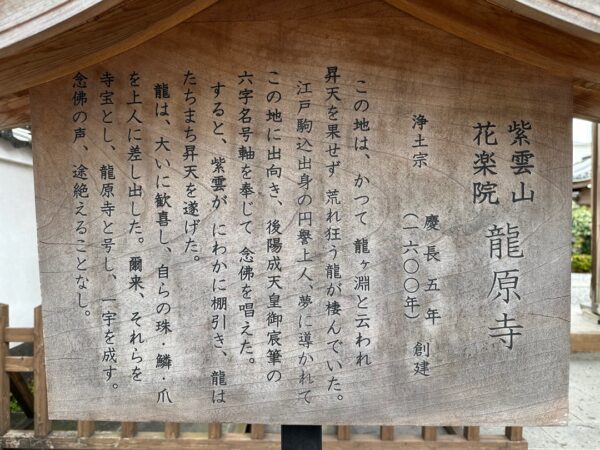 紫雲山
花楽院
龍原寺
浄土宗 慶長五年 創建
(一六〇〇年)
この地は、かつて 龍ヶ淵と云われ
昇天を果せず 荒れ狂う龍が棲んでいた。
江戸駒込出身の円誉上人、夢に導かれて
この地に出向き、後陽成天皇御宸筆の
六字名号軸を奉じて 念佛を唱えた。
すると、紫雲が にわかに棚引き、龍は
たちまち昇天を遂げた。
龍は、大いに歓喜し、自らの珠・鱗・爪
を上人に差し出した。爾来、それらを
寺宝とし、龍原寺と号し、一宇を成す。
念佛の声、途絶えることなし。